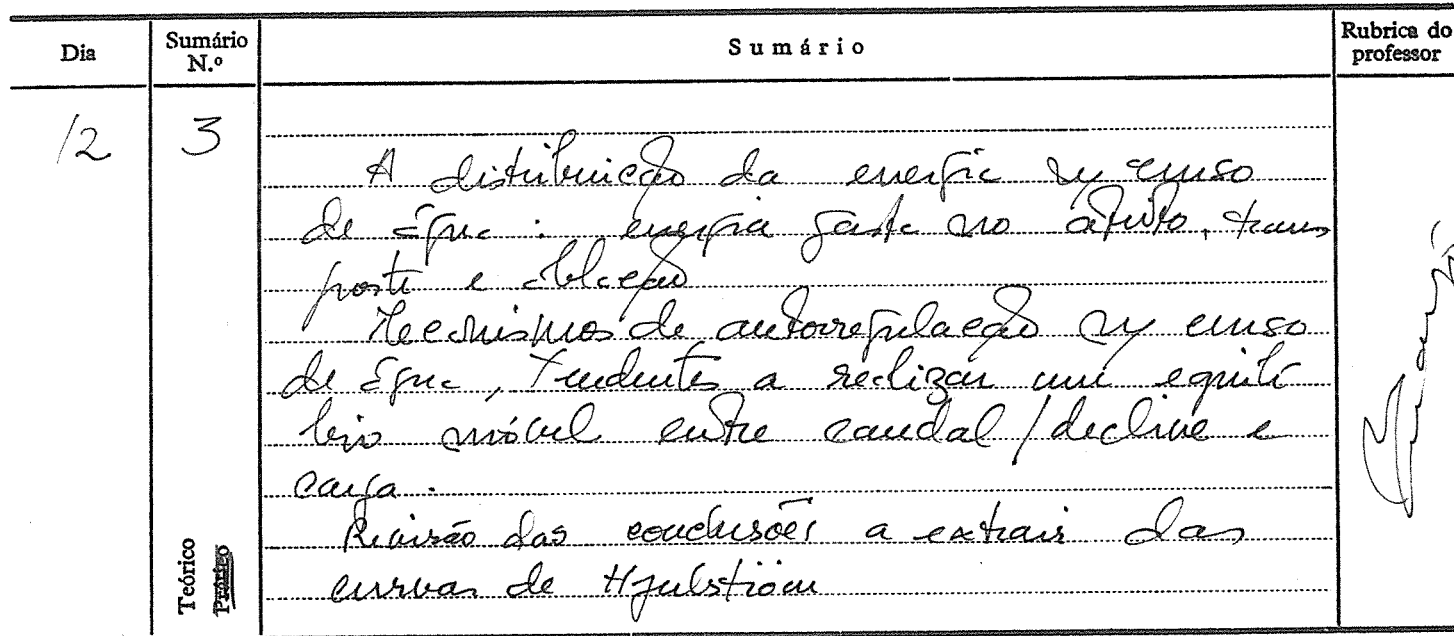 Dia
Sumário N.º
Sumário
Rubrica do professor
12
3
A distribuição da energia num curso
de água : energia gasta no atrito, trans
porte e ablação
Mecanismos de autorregulação num curso
de água, tendentes a realizar um equilí
brio móvel entre caudal / declive e
carga.
Revisão das conclusões a extrair das
curvas de Hjulström
Teórico
Prático